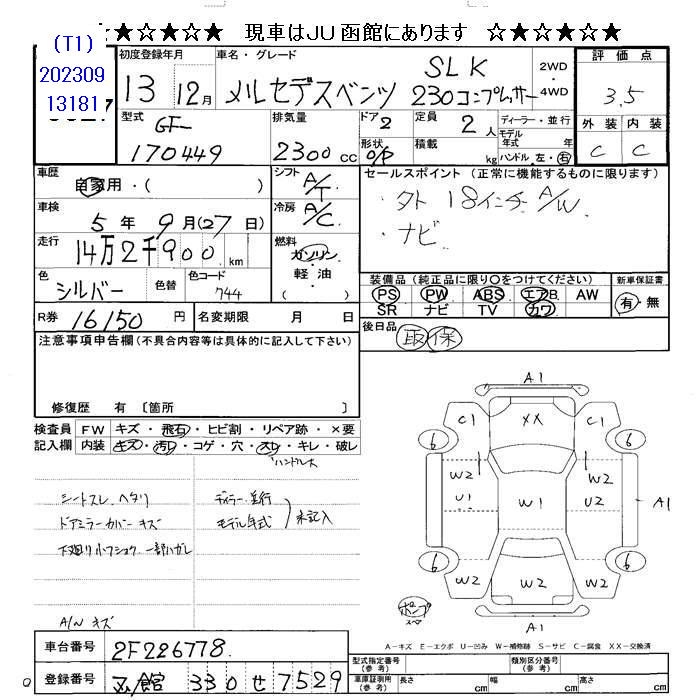 ★☆★☆★☆ 現車はJU函館にあります ☆★☆★☆★
(T1)
202309
13181
初度登録年月 車名・グレード 評価点
13 12月 メルセデスベンツ SLK 230コンプレッサー 2WD・4WD 3.5
型式 排気量 ドア 定員 ディーラー・並行 外装 内装
GF- 170449 2300cc 2 2人 モデル年式 年 C C
形状 O/P 積載 kg ハンドル 左・右
車歴 自家用・( ) シフト A/T セールスポイント (正常に機能するものに限ります)
・タト 18インチ A/W
・ナビ
車検 5年9月(27日) 冷房 A/C
走行 14万2千900km 燃料 ガソリン・軽油・( )
色 シルバー 色替 色コード 744
装備品 (純正品に限り○をつけてください) 新車保証書
PS PW ABS エアB. AW 有・無
SR ナビ TV カワ
R券 16150円 名変期限 月 日
後日品 取 保
注意事項申告欄(不具合内容等は具体的に記入して下さい)
修復歴 有 〔箇所 〕
検査員記入欄 FW キズ・飛石・ヒビ割・リペア跡・×要
内装 キズ・汚レ・コゲ・穴・スレ・キレ・破レ
ハンドル大
シートスレ、ヘタリ
ドアミラーカバーキズ
下廻り小フショク 一部ハガレ
ディーラー・並行
モデル年式
未記入
A/W キズ
A1
C1 XX C1
6 6
W2 W2
U1 W1 U2 A1
6 6
W2 W2 W2
ポンプ
スペ
A1
A-キズ E-エクボ U-凹み W-補修跡 S-サビ C-腐食 XX-交換済
車台番号 2F226778
登録番号 函館 330 せ 7529
型式指定番号(参考) 類別区分番号(参考)
車庫証明用(参考) 長さ cm 幅 cm 高さ cm